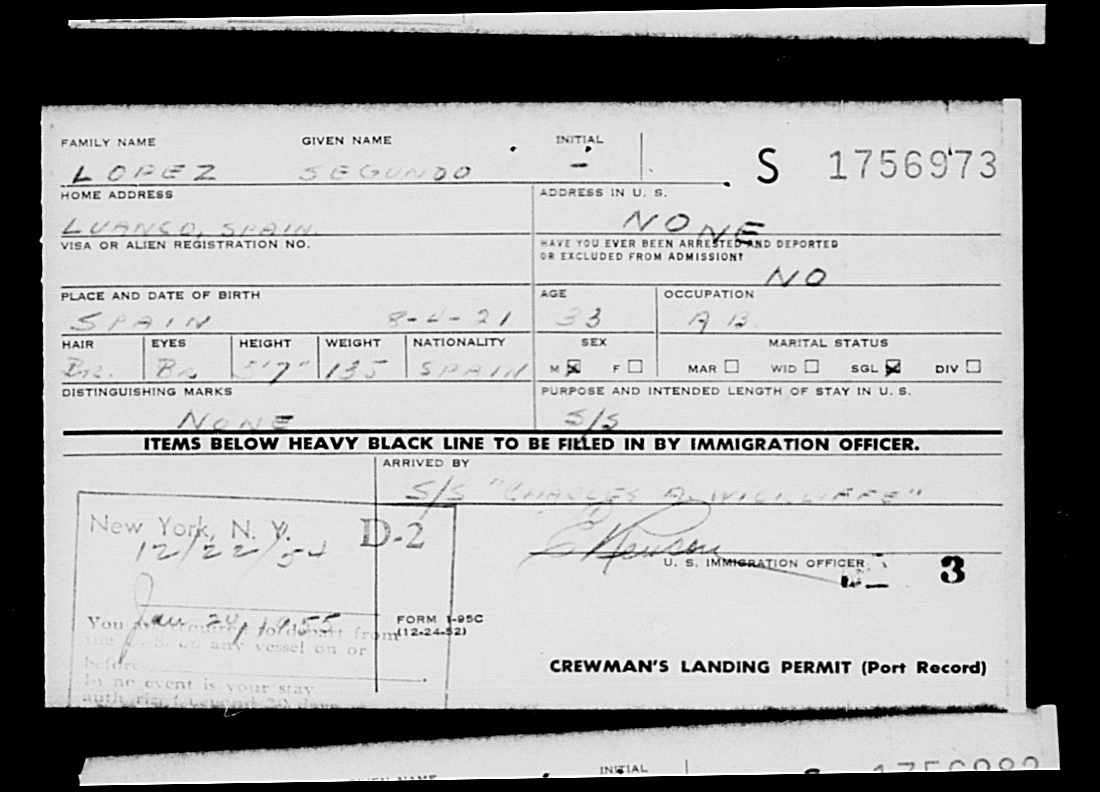 FAMILY NAME GIVEN NAME INITIAL
LOPEZ SEGUNDO - S 1756973
HOME ADDRESS ADDRESS IN U. S.
LUANCO, SPAIN. NONE
VISA OR ALIEN REGISTRATION NO. HAVE YOU EVER BEEN ARRESTED AND DEPORTED
OR EXCLUDED FROM ADMISSION?
NO
PLACE AND DATE OF BIRTH AGE OCCUPATION
SPAIN 8-4-21 33 A B.
HAIR EYES HEIGHT WEIGHT NATIONALITY SEX MARITAL STATUS
Br. Br 5'7" 135 SPAIN M ☒ F ☐ MAR ☐ WID ☐ SGL ☒ DIV ☐
DISTINGUISHING MARKS PURPOSE AND INTENDED LENGTH OF STAY IN U. S.
NONE S/S
ITEMS BELOW HEAVY BLACK LINE TO BE FILLED IN BY IMMIGRATION OFFICER.
ARRIVED BY
S/S "CHARLES A. WICKLIFFE"
New York, N. Y. D-2
12/22/54
U. S. IMMIGRATION OFFICER
3
Jan 24, 1955
You are required to depart from
the U. S. on any vessel on or
before
In no event is your stay
FORM I-95C
(12-24-52)
CREWMAN'S LANDING PERMIT (Port Record)
INITIAL